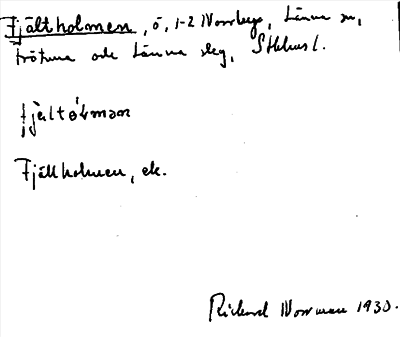 Fjältholmen, ö, 1-2 Norrberga, Länna sn,
Frötuna och Länna skg, Sthlms l.
fjæltòlman
Fjällholmen, ek.
Rickard Norrman 1930.